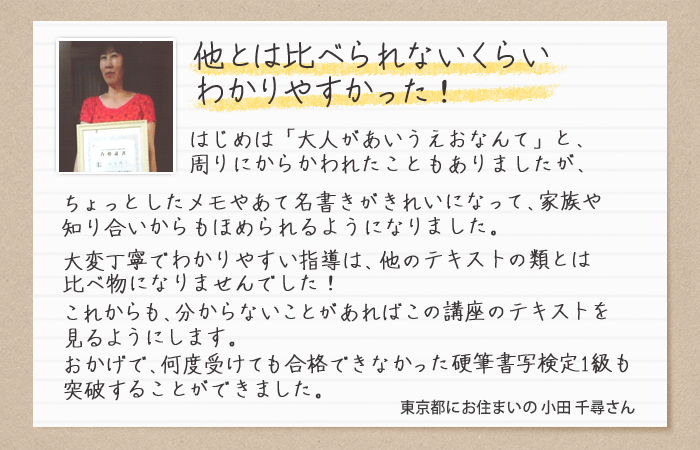 他とは比べられないくらい
わかりやすかった！
はじめは「大人があいうえおなんて」と、
周りにからかわれたこともありましたが、
ちょっとしたメモやあて名書きがきれいになって、家族や
知り合いからもほめられるようになりました。
大変丁寧でわかりやすい指導は、他のテキストの類とは
比べ物になりませんでした！
これからも、分からないことがあればこの講座のテキストを
見るようにします。
おかげで、何度受けても合格できなかった硬筆書写検定1級も
突破することができました。
東京都にお住まいの 小田 千尋さん